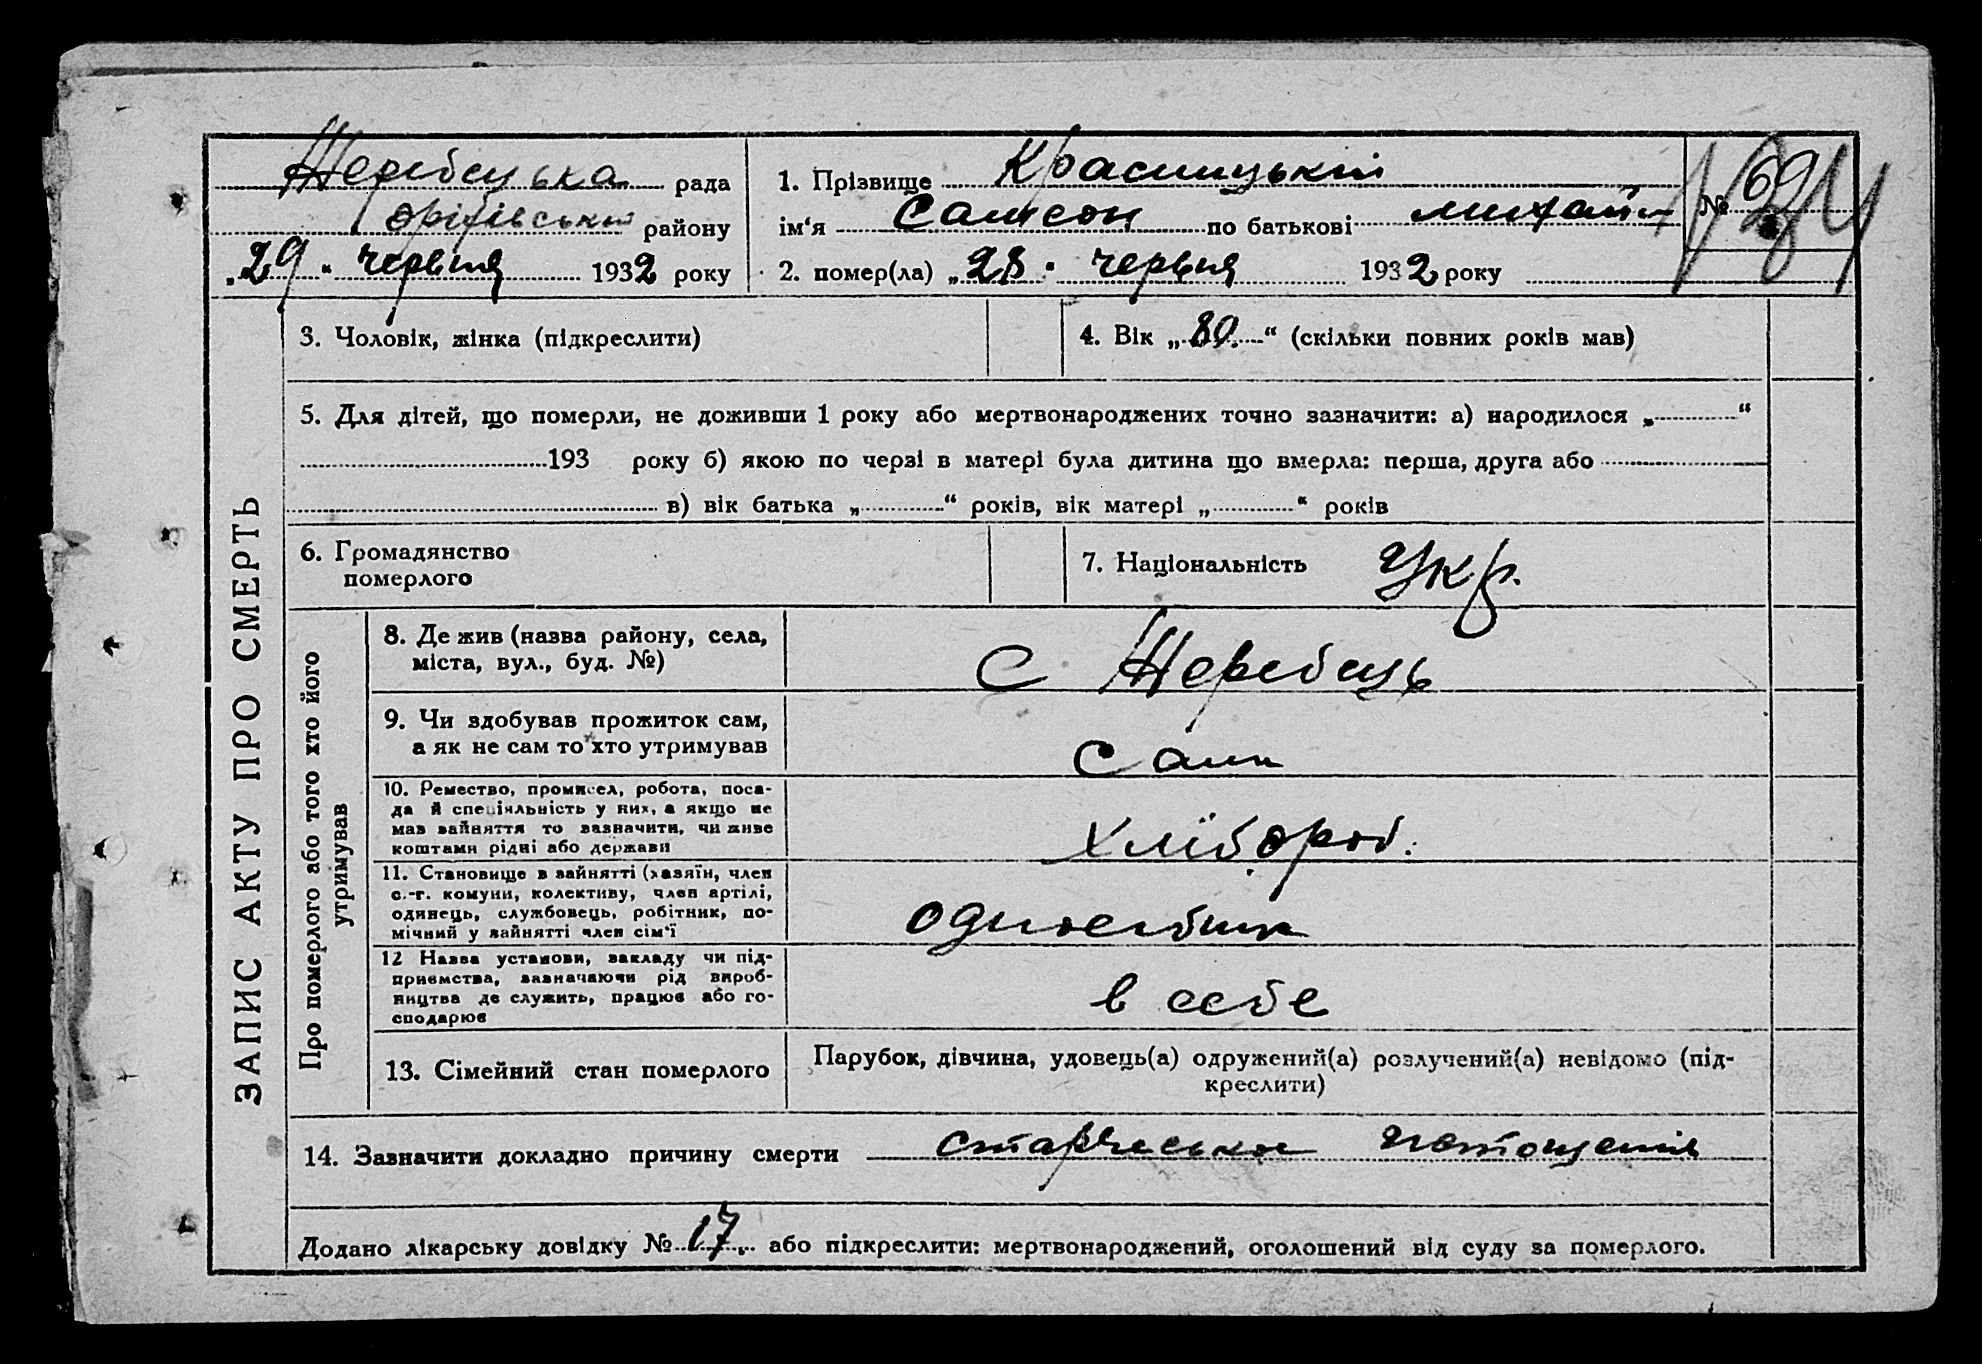 Жеребецька рада
Оріхівський району
„29“ червня 1932 року
1. Прізвище Красицький
ім‘я Самсон по батькові Михайл
№ 69
2. помер(ла) „28“ червня 1932 року
ЗАПИС АКТУ ПРО СМЕРТЬ
3. Чоловік, жінка (підкреслити)
4. Вік „80“ (скільки повних років мав)
5. Для дітей, що померли, не доживши 1 року або мертвонароджених точно зазначити: а) народилося „ “
193 року б) якою по черзі в матері була дитина що вмерла: перша, друга або
в) вік батька „ “ років, вік матері „ “ років
6. Громадянство
померлого
7. Національність Укр.
Про померлого або того хто його
утримував
8. Де жив (назва району, села,
міста, вул., буд. №)
С Жеребець
9. Чи здобував прожиток сам,
а як не сам то хто утримував
Сам
10. Ремество, промисел, робота, поса-
да й спеціяльність у них, а якщо не
мав зайняття то зазначити, чи живе
коштами рідні або держави
Хлібороб.
11. Становище в зайнятті (хазяїн, член
с.-г. комуни, колективу, член артілі,
одинець, службовець, робітник, по-
мічний у зайнятті член сім‘ї
12 Назва установи, закладу чи під-
приємства, зазначаючи рід вироб-
ництва де служить, працює або го-
сподарює
в себе
13. Сімейний стан померлого
Парубок, дівчина, удовець(а) одружений(а) розлучений(а) невідомо (під-
креслити)
14. Зазначити докладно причину смерти старческое
Додано лікарську довідку № 17 або підкреслити: мертвонароджений, оголошений від суду за померлого.